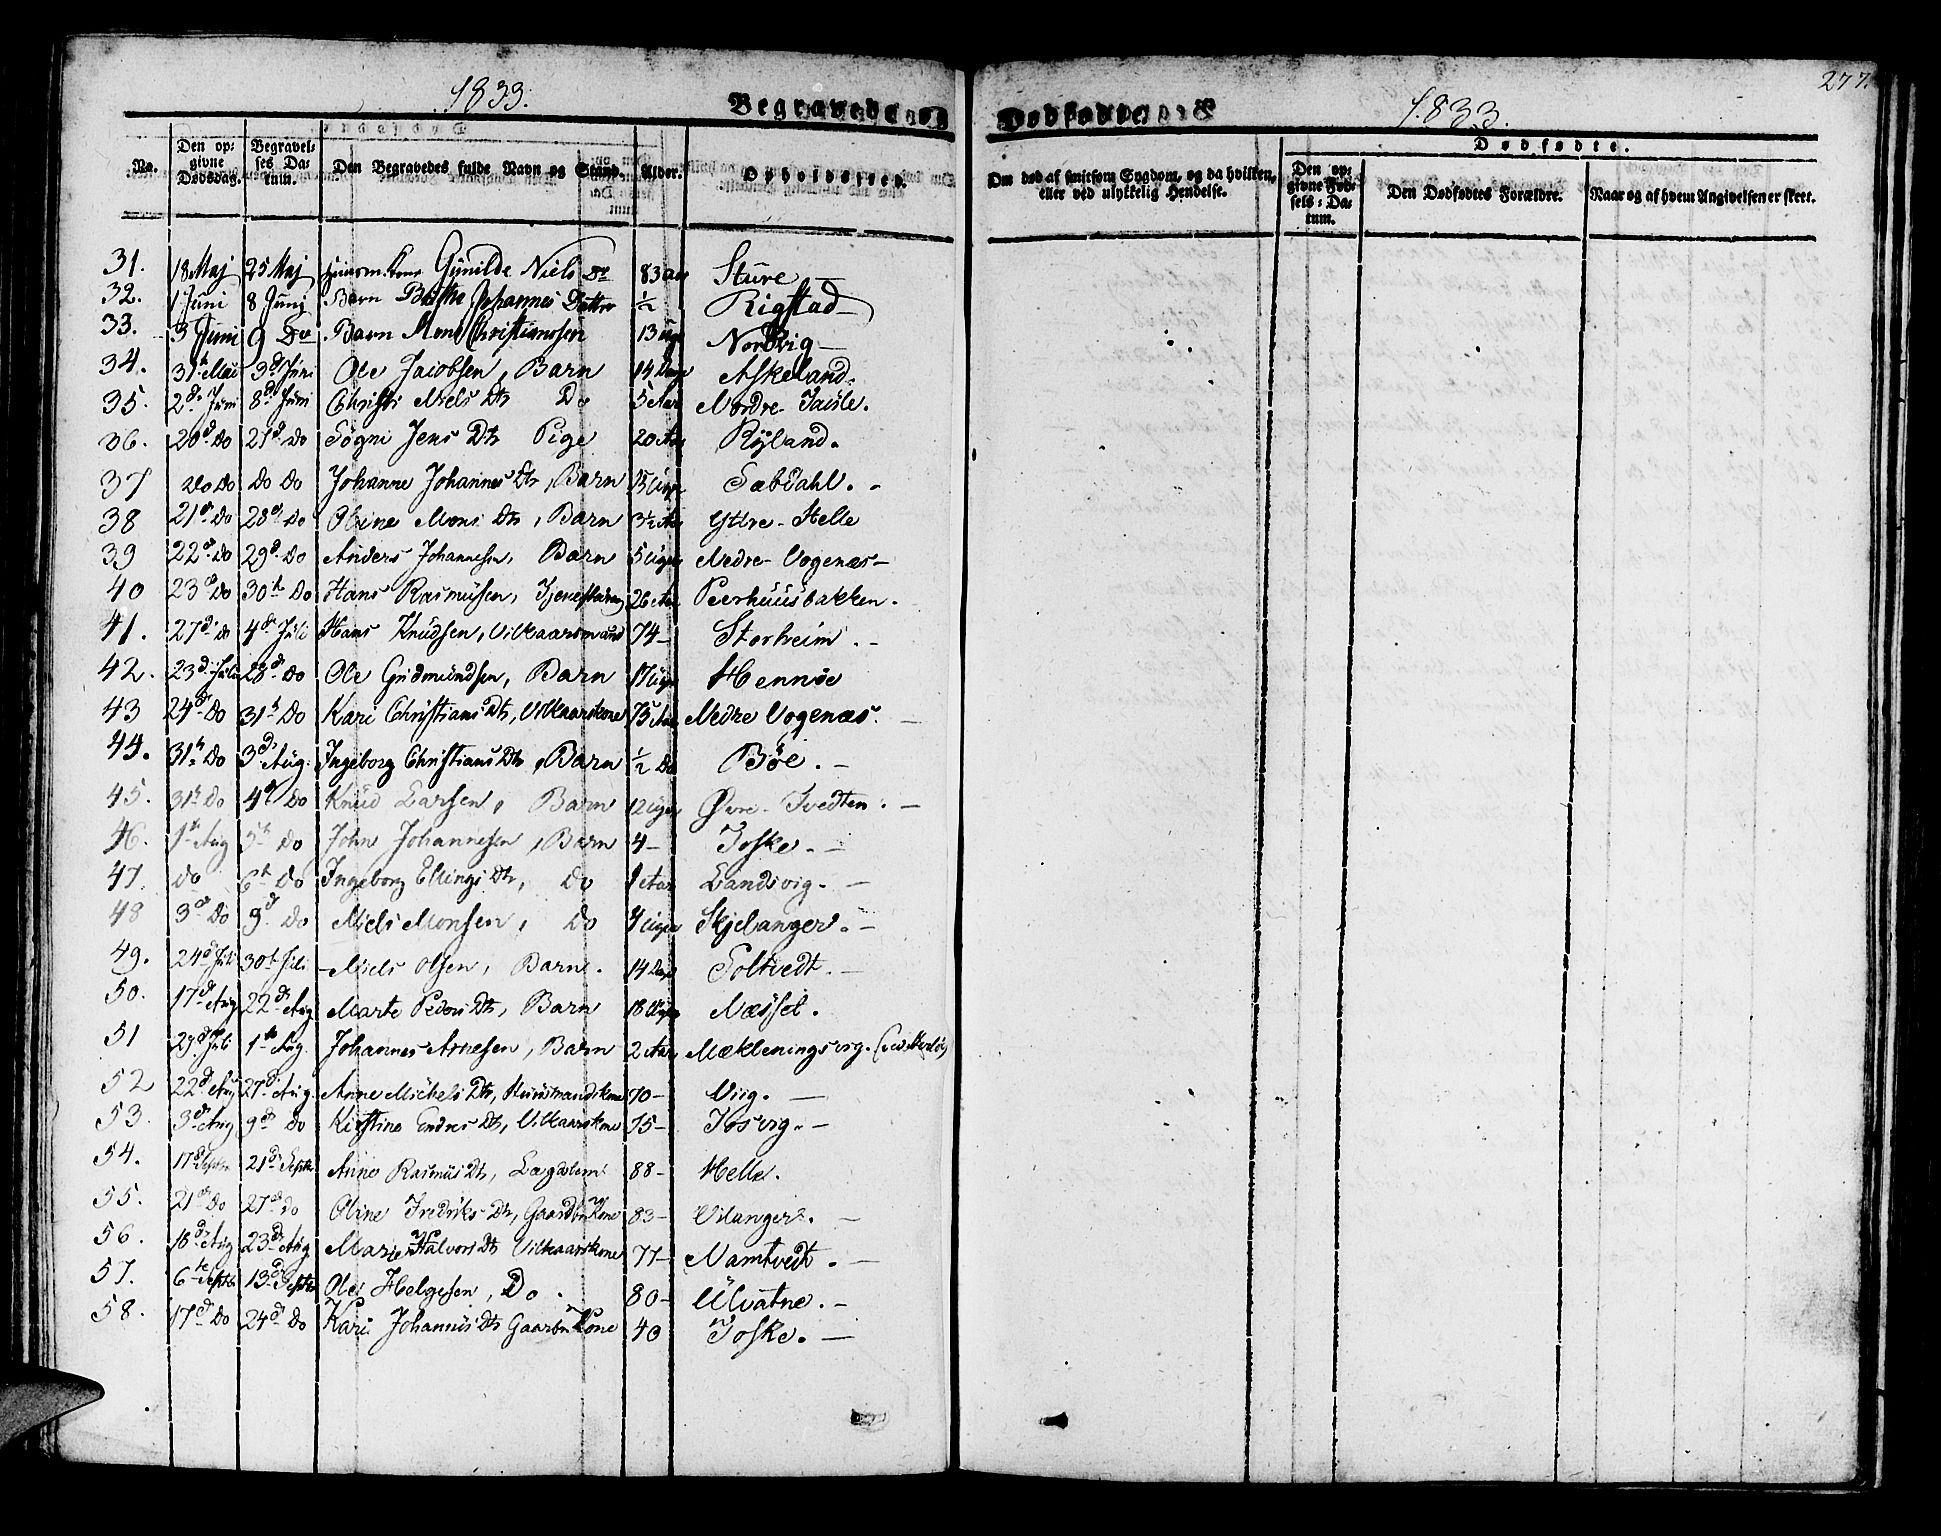 1833.
Begravede og
No.
Den opgivne Dødsdag.
Begravelses Datum.
Den Begravedes fulde Navn og Stand.
Alder.
Opholdssted.
31. 18 Maj 25 Maj Huusm. Kone Gunilde Niels Dr 83 aar Sture
32. 1 Juni 8 Junj Barn Johannes Datter ½ Rigstad
33. 3 Juni 9 Do Barn Mons Christiansen 13 Uger Nordvig
34. 31te Mai 3d Juni Ole Jacobsen, Barn 14 Dage Askeland.
35. 2d Juni 8d Juni Christi Niels Dtr Do 5 Aar Nordre
36. 20d Do 27d Do Søgni Jens Dtr Pige 20 Aar Ryland.
37 Do Do Do Do Johanne Johannes Dtr, Barn 15 Uger Sæbdahl.
38 21d Do 28d Do Oline Mons Dtr, Barn 3½ Aar Yttre Helle
39 22d Do 29d Do Anders Johannesen, Barn 5 Uger Nedre Vogenæs
40 23d Do 30te Do Hans Rasmusen, 26 Aar Peerhuusbakken.
41. 27d Do 4de Juli Hans Knudsen, Vilkaarsmand 74 Storheim.
42. 23d Juli 28d Do Ole Gudmundsen, Barn 17 Uger Hennøe
43 24d Do 31te Do Kari Christians Dtr, Vilkaarskone 75 Aar Nedre Vogenæs.
44. 31te Do 3d Aug. Ingeborg Christians Dtr, Barn ½ Do Bøe.
45. 31te Do 4d Do Knud Larsen, Barn 12 Uger Øvre Tvedten.
46. 1te Aug 5te Do John Johannesen, Barn 4 Toske.
47. Do 6te Do Ingeborg Ellings Dtr, Do 1 Aar Landsvig.
48 3d Do 9d Do Niels Monsen, Do 4 Uger Skjelanger.
49. 24d Juli 30te Juli Niels Olsen, Barn. 14 Dage Soltvedt.
50. 17d Aug 22d Aug Marte Peders Dtr, Barn 18 Uger Næssel.
51 29d Juli 1te Aug. Johannes Arnesen, Barn 2 Aar Mækleningsvig.
52 22d Aug 27d Aug. Anne Michels Dtr, Huusmandskone 70 Viig.
53. 3d Aug 9d Do Kirstine Endres Dtr, Vilkaarskone 75 Tosvig.
54. 17d Septbr 21d Septbr Anne Rasmus Dtr, Lægdslem 88 Helle.
55. 21d Do 27d Do Oline Fredriks Dtr, Gaardbr. Kone 83 Vilanger.
56. 16d Aug 23d Aug Marie Halvors Dtr Vilkaarskone 77 Namtvedt.
57. 6te Septbr 13d Septbr Ole Helgesen, Do. 80 Ulvatne.
58. 17d Do 24d Do Kari Johannis Dtr Gaarbr. Kone 40 Toske.
Dødfødte.
1833.
277.
Om død af smitsom Sygdom, og da hvilken, eller ved ulykkelig Hendelse.
Dødfødte.
Den opgivne Fødsels-Datum.
Den Dødfødtes Forældre.
Naar og af hvem Angivelsen er skeet.